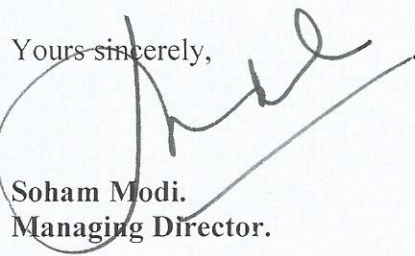 Yours sincerely,
Soham Modi.
Managing Director.